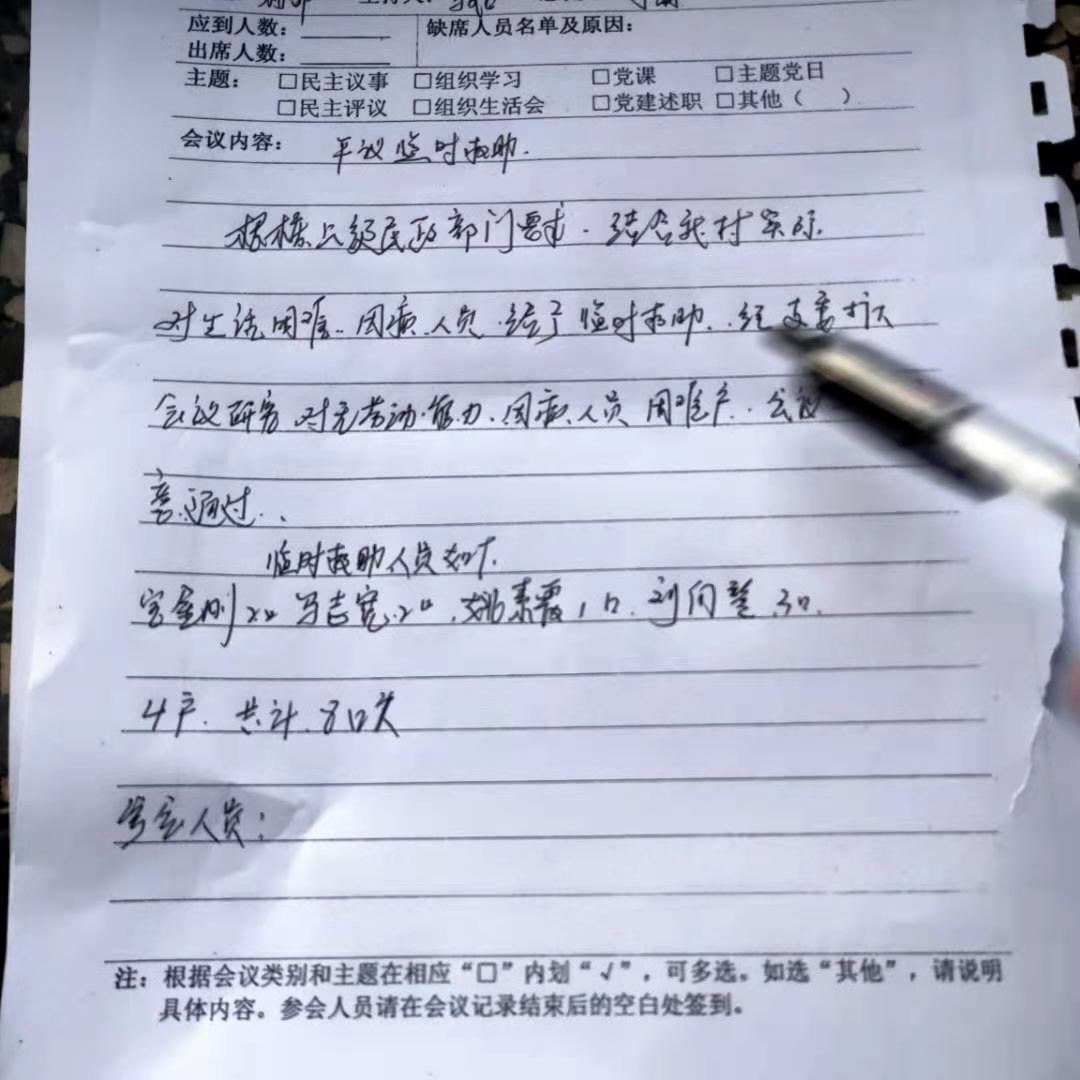 应到人数：
缺席人员名单及原因：
出席人数：
主题： □民主议事 □组织学习 □党课 □主题党日
□民主评议 □组织生活会 □党建述职 □其他（ ）
会议内容： 平议临时救助.
根据上级民政部门要求.结合我村实际
对生活困难..因病.人员.给予临时救助..经支委扩大
会议研究.对无劳动能力.因病人员困难户.会议
意通过..
临时救助人员如下.
2口 马志宽.2口.姚素霞1口.刘向 3口.
4户.共计.8口人
参会人员：
注：根据会议类别和主题在相应“□”内划“√”，可多选。如选“其他”，请说明
具体内容。参会人员请在会议记录结束后的空白处签到。